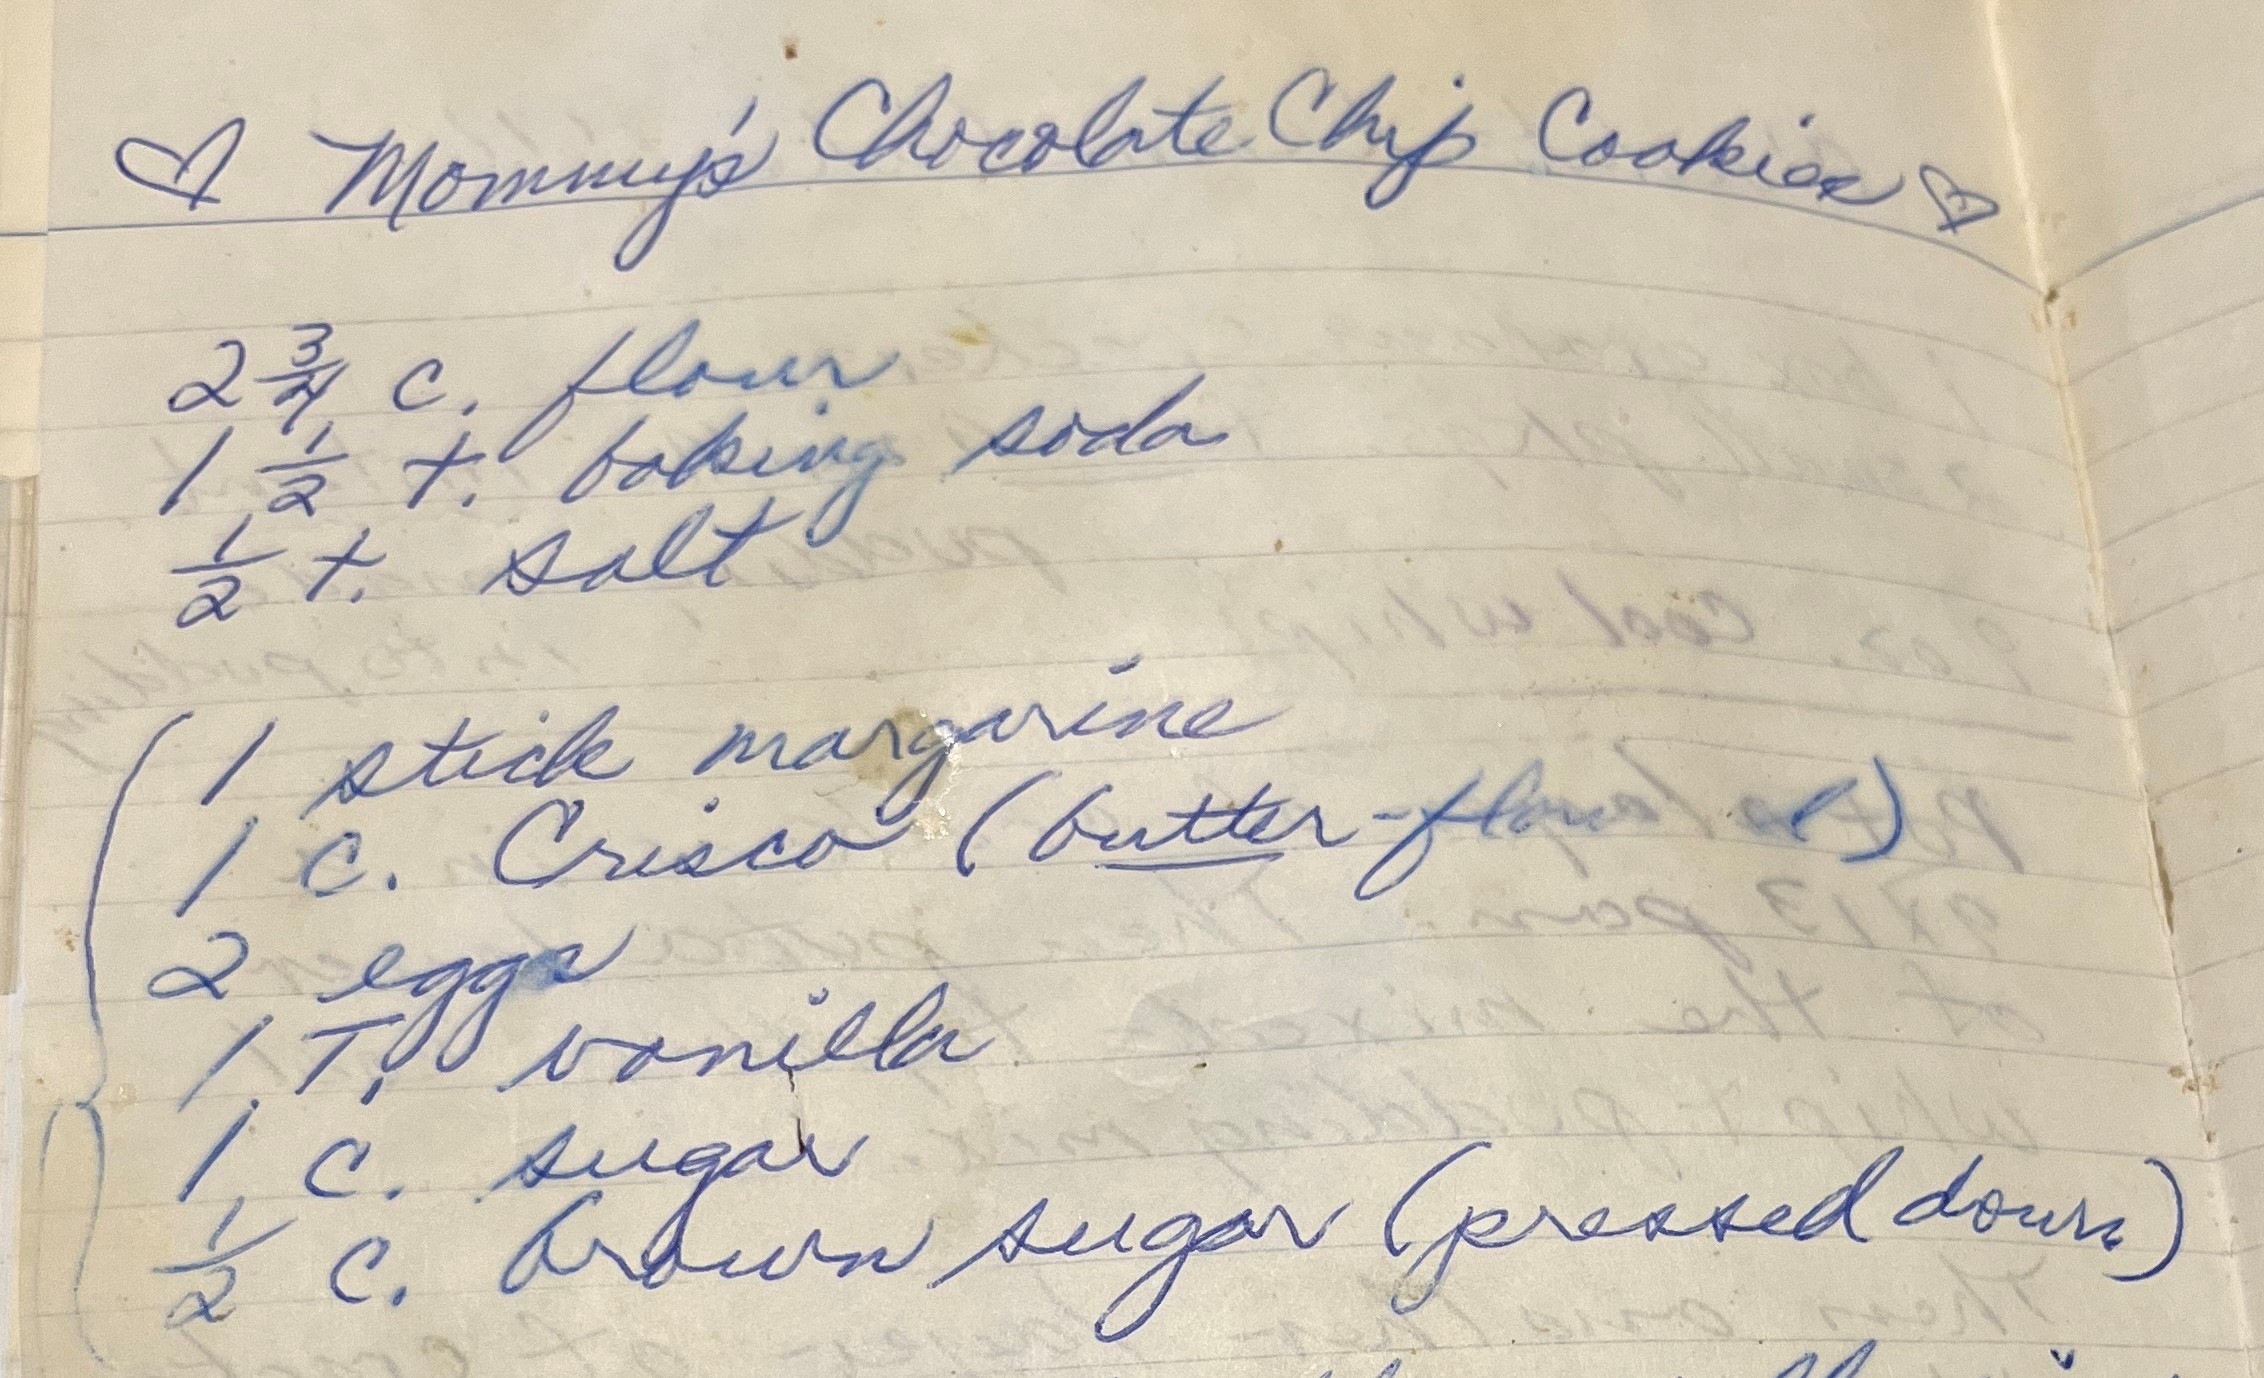 ♡ Mommy's Chocolate Chip Cookies ♡
2 3/4 c. flour
1 1/2 t. baking soda
1/2 t. salt
1 stick margarine
1 c. Crisco (butter-flavored)
2 eggs
1 T. vanilla
1 c. sugar
1/2 c. brown sugar (pressed down)